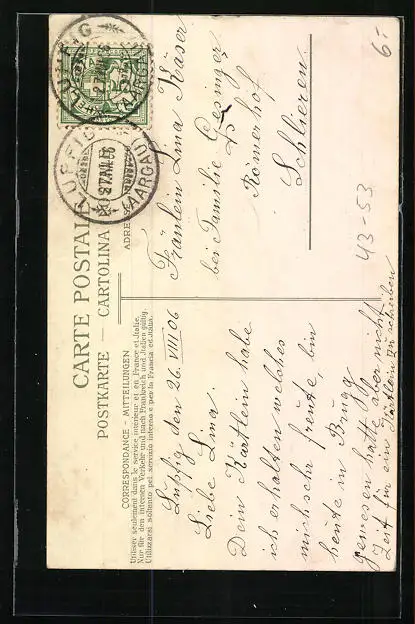 CARTE POSTALE
POSTKARTE — CARTOLINA POSTALE
CORRESPONDANCE – MITTEILUNGEN
Utiliser seulement dans le service intérieur et en France et Italie.
Nur für den internen Verkehr und nach Frankreich und Italien gültig.
Utilizzarsi soltanto pel servizio interno e per la Francia ed Italia.
Lupfig den 26. VIII 06
Liebe Lina
Dein Kärtlein habe
ich erhalten welches
mich sehr freute bin
heute in Brugg
gewesen hatte aber nicht
Zeit für ein Kärtlein zu schreiben
ADRESSE
Fräulein Lina Käser
bei Familie Gesinger
Römerhof
Schlieren.
LUPFIG
27. VIII. 06
(AARGAU)
LUPFIG
(AARGAU)
6.-
43-53